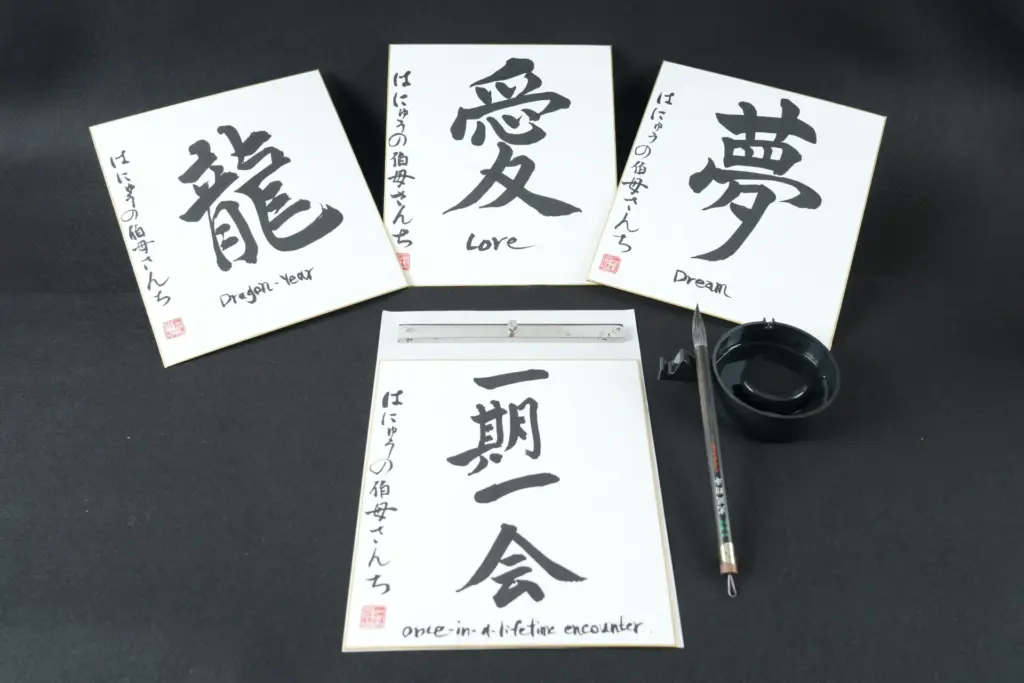 龍
はにゅうの伯母さんち
Dragon-Year
愛
はにゅうの伯母さんち
Love
夢
はにゅうの伯母さんち
Dream
一期一会
はにゅうの伯母さんち
once-in-a-lifetime encounter.